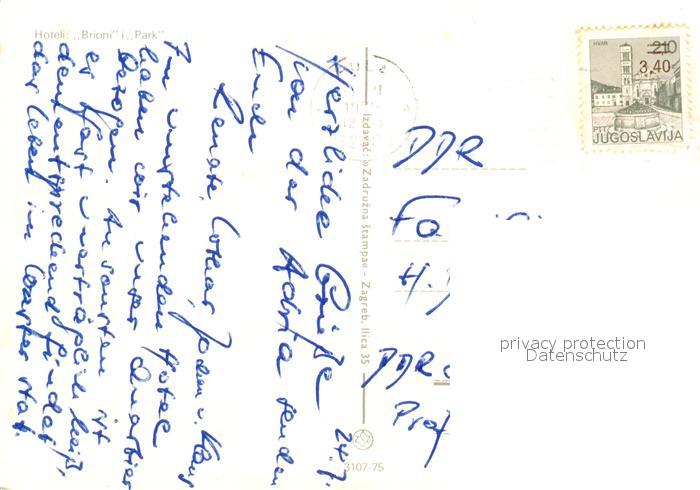 Hoteli: „Brioni" i „Park"
24.7.
Herzliche Grüße
von der Adria senden
Euch
Renate, Lothar, Jochen u. Klaus
Im umstehenden Hotel
haben wir unser Quartier
bezogen. Ansonsten ist
es fast unerträglich heiß,
dementsprechend findet
das Leben im Wasser statt.
Izdavač: »Zadružna štampa« - Zagreb, Ilica 35
3107-75
PULA
HVAR
210
3,40
PTT
JUGOSLAVIJA
DDR
Fa
H.
DDR
privacy protection
Datenschutz